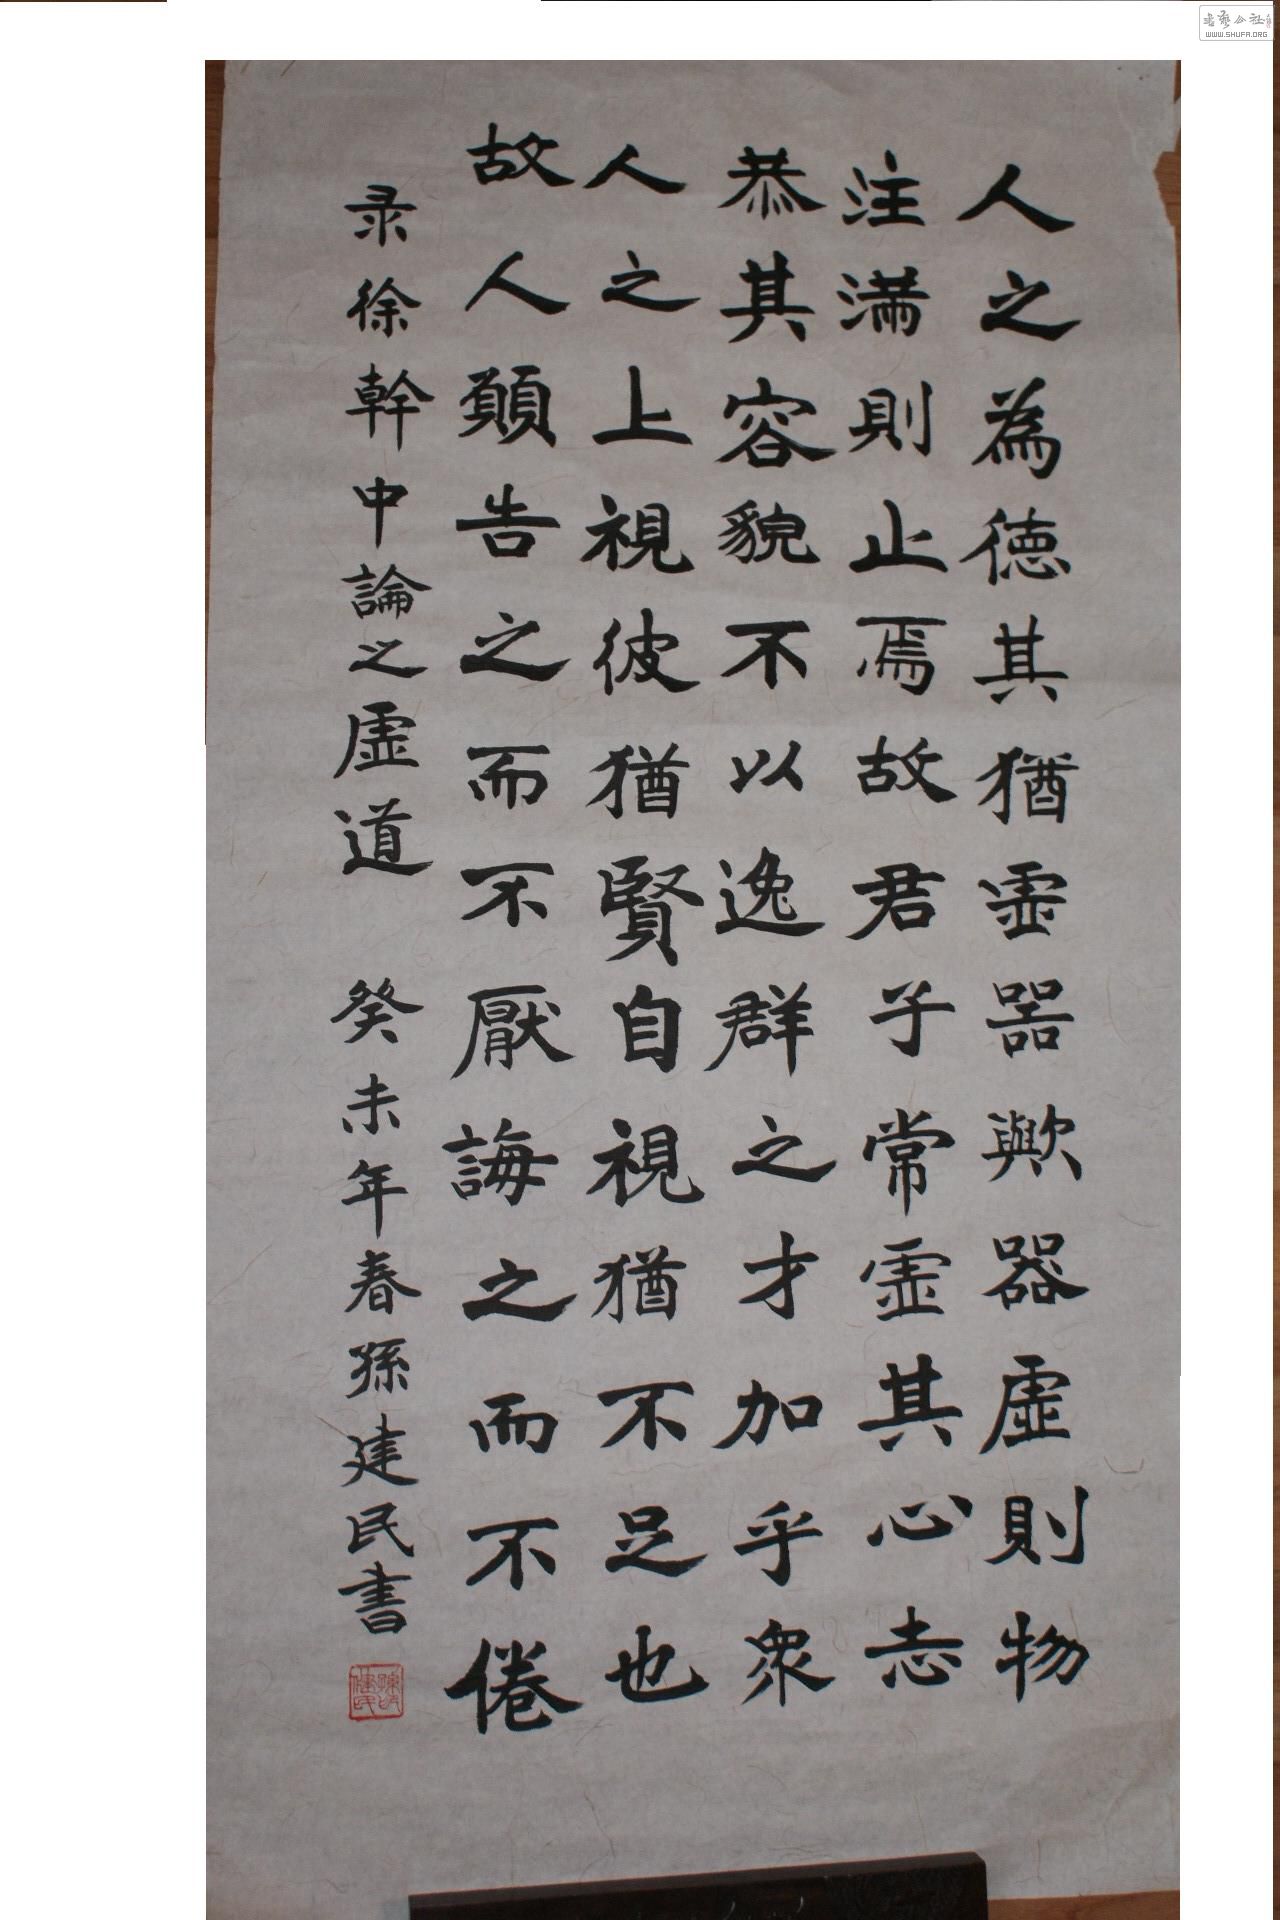 人之為德其猶虛器歟器虛則物
注满則止焉故君子常虛其心志
恭其容貌不以逸群之才加乎眾
人之上視彼猶賢自視猶不足也
故人願告之而不厭誨之而不倦
录徐幹中論之虛道 癸未年春孫建民書
孫建民
書藝公社
WWW.SHUFA.ORG